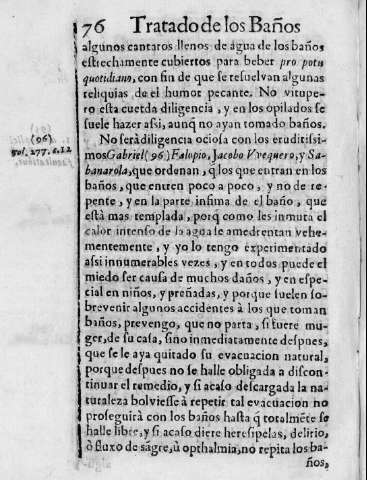 76 Tratado de los Baños
algunos cantaros llenos de agua de los baños
estrechamente cubiertos para beber pro potu
quotidiano, con fin de que se resuelvan algunas
reliquias de el humor pecante. No vitupe-
ro esta cuerda diligencia, y en los opilados se
suele hazer assi, aunq̃ no ayan tomado baños.
No serà diligencia ociosa con los eruditissi-
mos Gabriel (96) Falopio, Jacobo Vvequero, y Sa-
banarola, que ordenan, q̃ los que entran en los
baños, que entren poco a poco, y no de re-
pente, y en la parte insima de el baño, que
està mas templada, porq̃ como les inmuta el
calor intenso de la agua se amedrentan vehe-
mentemente, y yo lo tengo experimentado
assi innumerables vezes, y en todos puede el
miedo ser causa de muchos daños, y en espe-
cial en niños, y preñadas, y porque suelen so-
brevenir algunos accidentes à los que toman
baños, prevengo, que no parta, si fuere mu-
ger, de su casa, sino inmediatamente despues,
que se le aya quitado su evacuacion natural,
porque despues no se halle obligada a discon-
tinuar el remedio, y si acaso descargada la na-
turaleza bolviesse à repetir tal evacuacion no
proseguirà con los baños hasta q̃ totalmẽte se
halle libre, y si acaso diere heresipelas, delirio,
ò fluxo de sãgre, ù opthalmia, no repita los ba-
ños,
(96)
fol. 277. c. 12